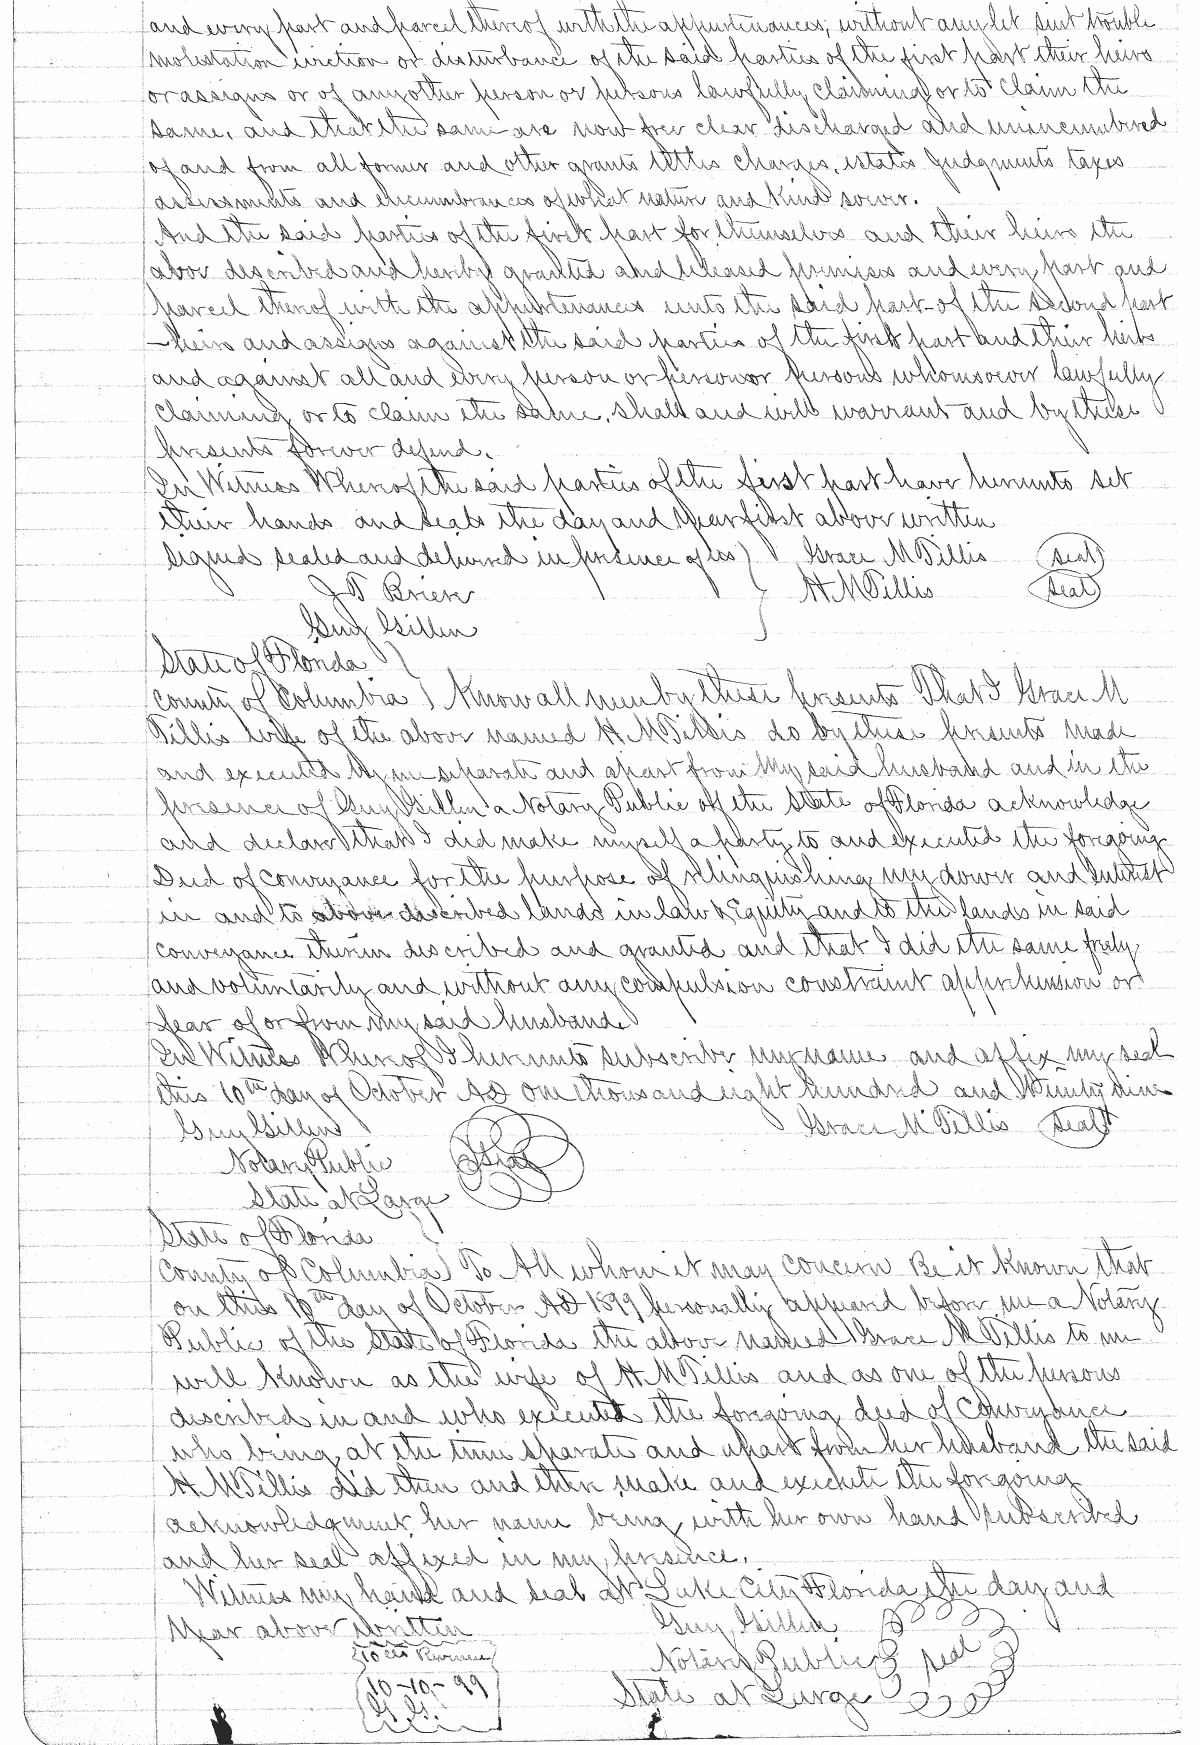 and every part and parcel thereof with the appurtenances, without any let suit trouble
molestation eviction or disturbance of the said parties of the first part their heirs
or assigns or of any other person or persons lawfully claiming or to claim the
same, and that the same are now free clear discharged and unincumbered
of and from all former and other grants titles charges, estates judgments taxes
assessments and encumbrances of what nature and kind soever.
And the said parties of the first part for themselves and their heirs the
above described and hereby granted and released premises and every part and
parcel thereof with the appurtenances unto the said part- of the second part
- heirs and assigns against the said parties of the first part and their heirs
and against all and every person or person or persons whomsoever lawfully
claiming or to claim the same, shall and will warrant and by these
presents forever defend.
In Witness Whereof the said parties of the first part have hereunto set
their hands and seals the day and year first above written
Signed sealed and delivered in presence of us } Grace McTillis (Seal)
J T Brierr H McTillis (Seal)
Guy Gillen
State of Florida }
County of Columbia } Know all men by these presents That I Grace M
Tillis wife of the above named H McTillis do by these presents made
and executed by me separate and apart from my said husband and in the
presence of Guy Gillen a Notary Public of the State of Florida acknowledge
and declare that I did make myself a party to and executed the foregoing
Deed of conveyance for the purpose of relinquishing my dower and Interest
in and to above described lands in law & Equity and to the lands in said
conveyance therein described and granted and that I did the same freely
and voluntarily and without any compulsion constraint apprehension or
fear of or from my said husband.
In Witness Whereof I hereunto subscribe my name and affix my seal
this 10th day of October AD one thousand eight hundred and Ninety nine
Guy Gillen Grace McTillis (Seal)
Notary Public (Seal)
State at Large
State of Florida }
County of Columbia } To All whom it may concern Be it Known that
on this 10th day of October AD 1899 personally appeared before me a Notary
Public of the State of Florida the above named Grace McTillis to me
well known as the wife of H McTillis and as one of the persons
described in and who executed the foregoing deed of Conveyance
who being at the time separate and apart from her husband the said
H McTillis did then and there make and execute the foregoing
acknowledgment her name being with her own hand subscribed
and her seal affixed in my presence.
Witness my hand and seal at Lake City Florida the day and
Year above written Guy Gillen
10 cts Revenue Notary Public seal
10-10-99 State at Large
G. G.